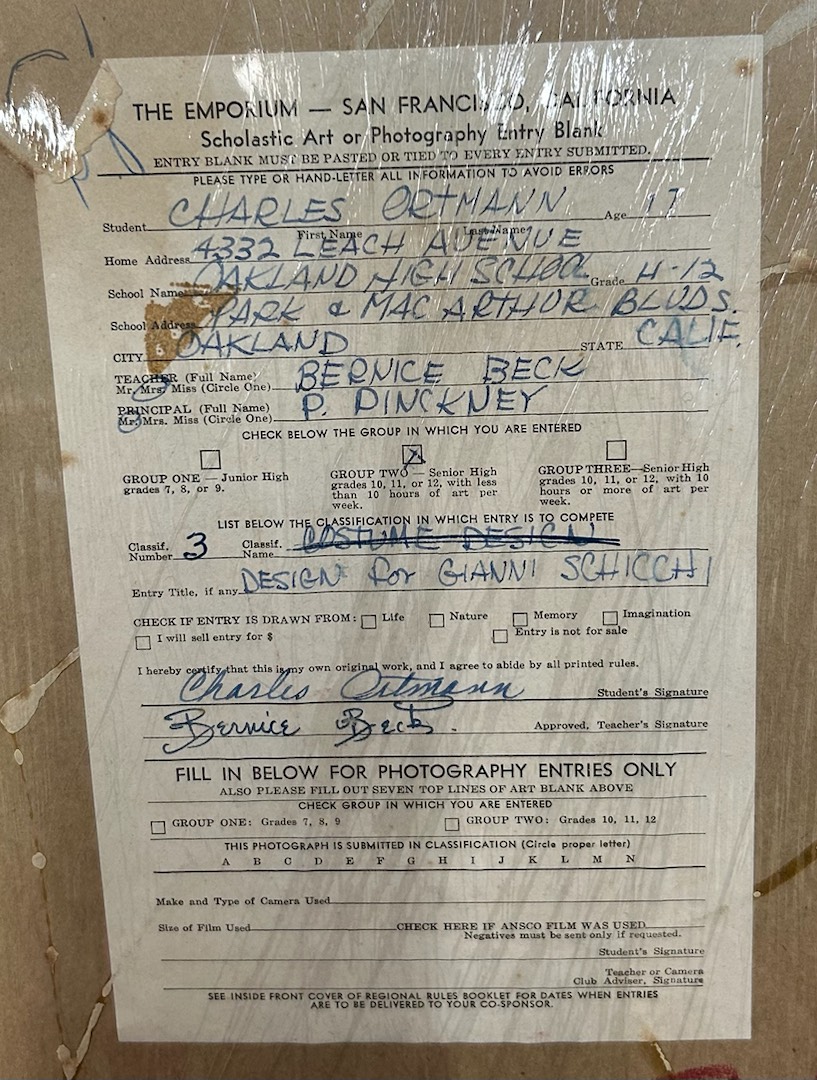 THE EMPORIUM — SAN FRANCISCO, CALIFORNIA
Scholastic Art or Photography Entry Blank
ENTRY BLANK MUST BE PASTED OR TIED TO EVERY ENTRY SUBMITTED.
PLEASE TYPE OR HAND-LETTER ALL INFORMATION TO AVOID ERRORS
Student CHARLES ORTMANN Age 17
First Name Last Name
Home Address 4332 LEACH AVENUE
School Name OAKLAND HIGH SCHOOL Grade H-12
School Address PARK & MAC ARTHUR BLVDS.
CITY OAKLAND STATE CALIF.
TEACHER (Full Name) BERNICE BECK
Mr. Mrs. Miss (Circle One)
PRINCIPAL (Full Name) P. PINCKNEY
Mr. Mrs. Miss (Circle One)
CHECK BELOW THE GROUP IN WHICH YOU ARE ENTERED
GROUP ONE — Junior High
grades 7, 8, or 9.
GROUP TWO — Senior High
grades 10, 11, or 12, with less
than 10 hours of art per
week.
GROUP THREE—Senior High
grades 10, 11, or 12, with 10
hours or more of art per
week.
LIST BELOW THE CLASSIFICATION IN WHICH ENTRY IS TO COMPETE
Classif. Number 3 Classif. Name COSTUME DESIGN
Entry Title, if any DESIGN for GIANNI SCHICCHI
CHECK IF ENTRY IS DRAWN FROM: Life Nature Memory Imagination
I will sell entry for $ Entry is not for sale
I hereby certify that this is my own original work, and I agree to abide by all printed rules.
Charles Ortmann Student's Signature
Bernice Beck. Approved, Teacher's Signature
FILL IN BELOW FOR PHOTOGRAPHY ENTRIES ONLY
ALSO PLEASE FILL OUT SEVEN TOP LINES OF ART BLANK ABOVE
CHECK GROUP IN WHICH YOU ARE ENTERED
GROUP ONE: Grades 7, 8, 9 GROUP TWO: Grades 10, 11, 12
THIS PHOTOGRAPH IS SUBMITTED IN CLASSIFICATION (Circle proper letter)
A B C D E F G H I J K L M N
Make and Type of Camera Used
Size of Film Used CHECK HERE IF ANSCO FILM WAS USED
Negatives must be sent only if requested.
Student's Signature
Teacher or Camera
Club Adviser, Signature
SEE INSIDE FRONT COVER OF REGIONAL RULES BOOKLET FOR DATES WHEN ENTRIES
ARE TO BE DELIVERED TO YOUR CO-SPONSOR.